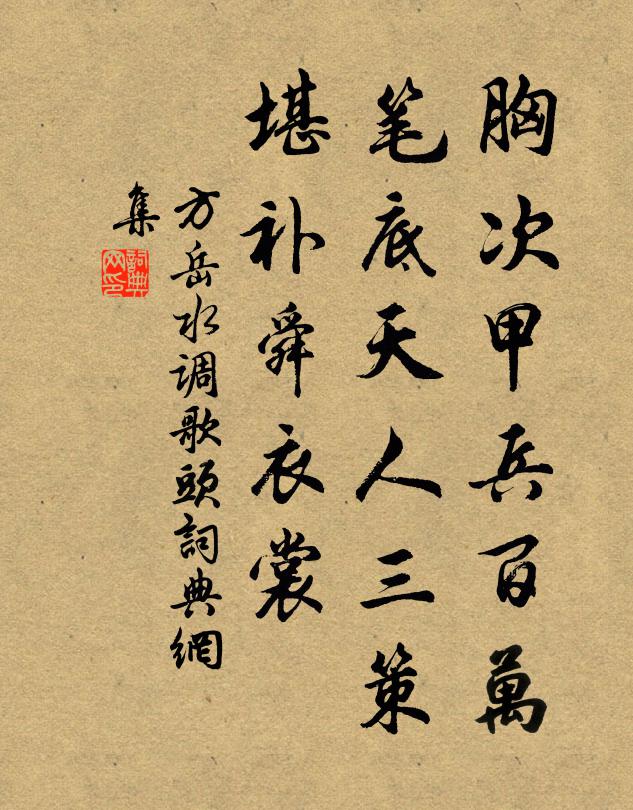 胸次甲兵百萬
笔底天人三策
堪补舜衣裳
方岳水调歌頭詞典網
集
詞典網印